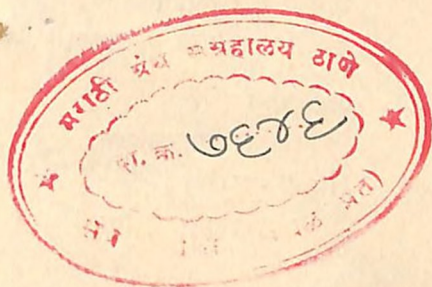 मराठी ग्रंथ संग्रहालय ठाणे
दा. क्र. ७६४६